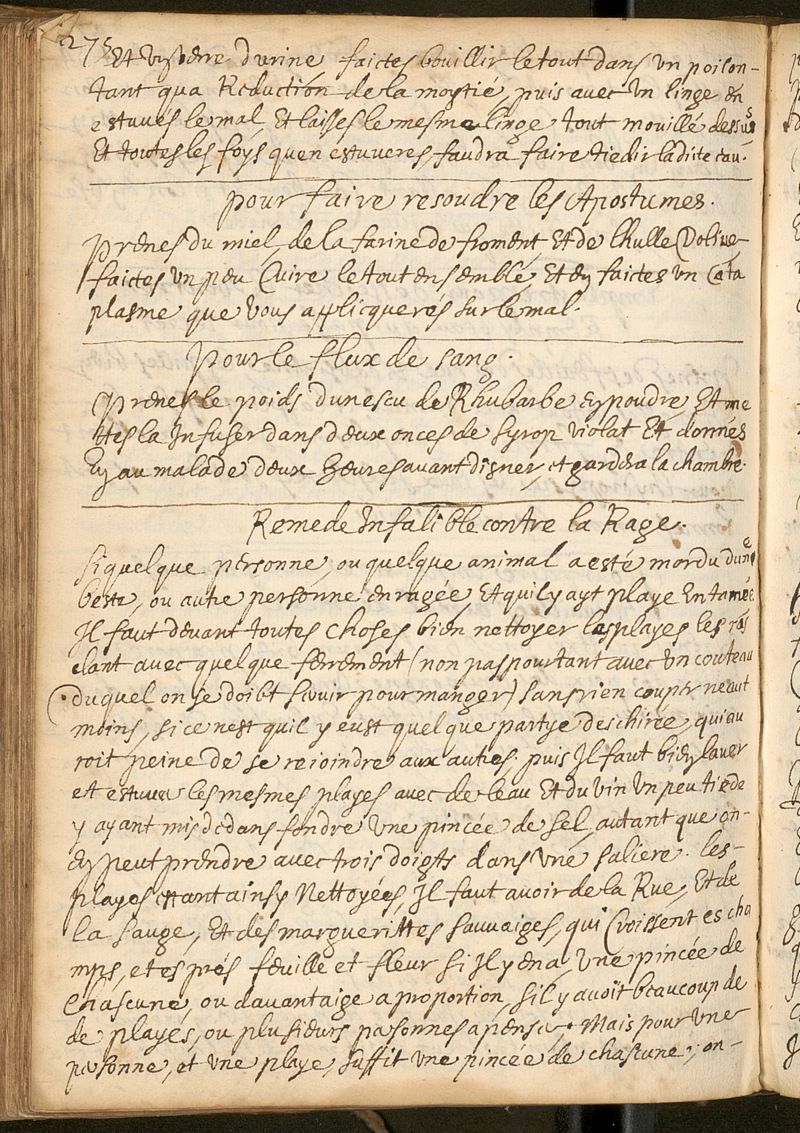 275
Et un verre durine faictes bouillir le tout dans un poilon
tant qua Reduction de la moytié, puis avec un linge en
estuvés le mal, Et laisses le mesme linge tout mouillé dessus
Et toutes les foys quen estuveres, faudra faire tiedir ladite eau.
pour faire resoudre les Apostumes.
prenes du miel, de la farine de froment Et de lhulle Dolive
faictes un peu Cuire le tout ensemble, Et en faictes un Cata
plasme que vous applicquerés sur le mal.
Pour le flux de sang.
Prenes le poids dunescu de Rhubarbe en poudre, Et me
ttes la Infuser dans deux onces de syrop violat Et donnés
En au malade deux heures avant disner, et gardera la chambre.
Remede Infalible contre la Rage.
Si quelque personne, ou quelque animal a esté mordu dune
beste, ou autre personne enragée, Et quil y ayt playe Entamée
Il faut devant toutes choses bien nettoyer les playes les ras
clant avec quelque ferrement (non pas pourtant avec un couteau
duquel on se doibt servir pour manger) sans rien couper neant
moins, si ce nest quil y eust quelque partye deschirée, qui au
roit peine de se rejoindre aux autres. puis Il faut bien laver
et estuver les mesmes playes avec de leau Et du vin un peu tiede
y ayant mis dedans fondre une pincée de sel, autant que on
en peut prendre avec trois doigts dans une saliere. les
playes estant ainsy Nettoyées, Il faut avoir de la Rue, Et de
la sauge, Et des marguerittes sauvaiges, qui Croissent es cha
mps, et es prés feuille et fleur si Il y en a, une pincée de
Chascune, ou davantaige a proportion, sil y avoit beaucoup de
de playes, ou plusieurs personnes a penser. Mais pour une
personne, et une playe, suffit une pincée de chascune, on